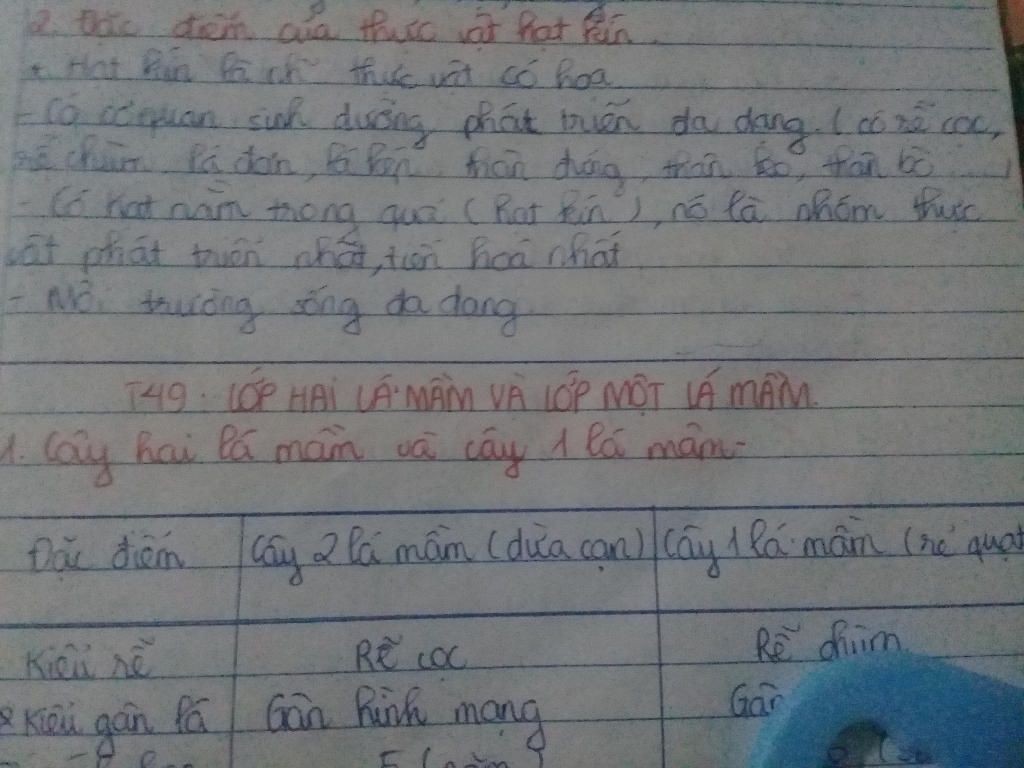 2. Đặc điểm của thực vật hạt kín.
+ Hạt kín là thực vật có hoa
- Có cơ quan sinh dưỡng phát triển đa dạng. (có rễ cọc,
rễ chùm, lá đơn, lá kép, thân đứng, thân leo, thân bò ....)
- Có hạt nằm trong quả (hạt kín), nó là nhóm thực
vật phát triển nhất, tiến hoá nhất
- Môi trường sống đa dạng
T49. LỚP HAI LÁ MẦM VÀ LỚP MỘT LÁ MẦM.
1. Cây hai lá mầm và cây 1 lá mầm.
Đặc điểm Cây 2 lá mầm (dừa cạn) Cây 1 lá mầm (rẻ quạt
Kiểu rễ Rễ cọc Rễ chùm
Kiểu gân lá Gân hình mạng Gân
5 (năm)